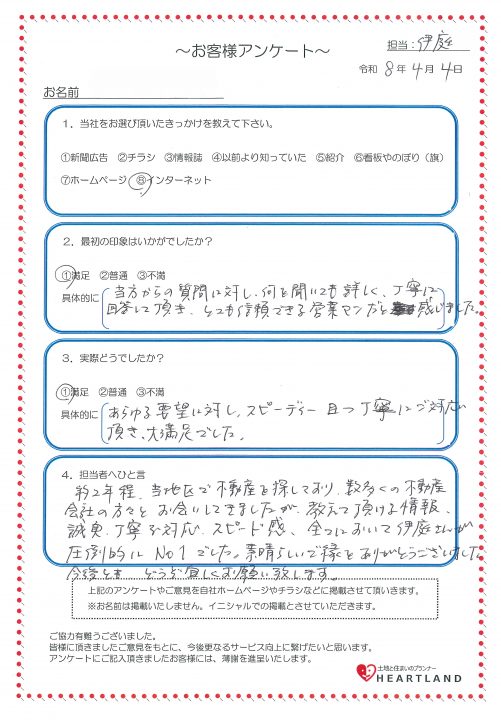 担当：伊庭
～お客様アンケート～
令和 8年 4月 4日
お名前
１．当社をお選び頂いたきっかけを教えて下さい。
①新聞広告 ②チラシ ③情報誌 ④以前より知っていた ⑤紹介 ⑥看板やのぼり（旗）
⑦ホームページ ⑧インターネット
２．最初の印象はいかがでしたか？
①満足 ②普通 ③不満
具体的に 当方からの質問に対し、何を聞いても詳しく、丁寧に
回答して頂き、とても信頼できる営業マンだと感じました。
３．実際どうでしたか？
①満足 ②普通 ③不満
具体的に あらゆる要望に対し、スピーディー且つ丁寧にご対応
頂き、大満足でした。
４．担当者へひと言
約2年程、当地区で不動産を探しており、数多くの不動産
会社の方々とお会いしてきましたが、教えて頂ける情報、
誠実、丁寧な対応、スピード感、全てにおいて伊庭さんが
圧倒的にNo1でした。素晴らしいご縁をありがとうございました。
今後とも、どうぞ宜しくお願い致します。
上記のアンケートやご意見を自社ホームページやチラシなどに掲載させて頂いきます。
※お名前は掲載いたしません。イニシャルでの掲載とさせていただきます。
ご協力有難うございました。
皆様に頂きましたご意見をもとに、今後更なるサービス向上に繋げたいと思います。
アンケートにご記入頂きましたお客様には、薄謝を進呈いたします。
土地と住まいのプランナー
HEARTLAND